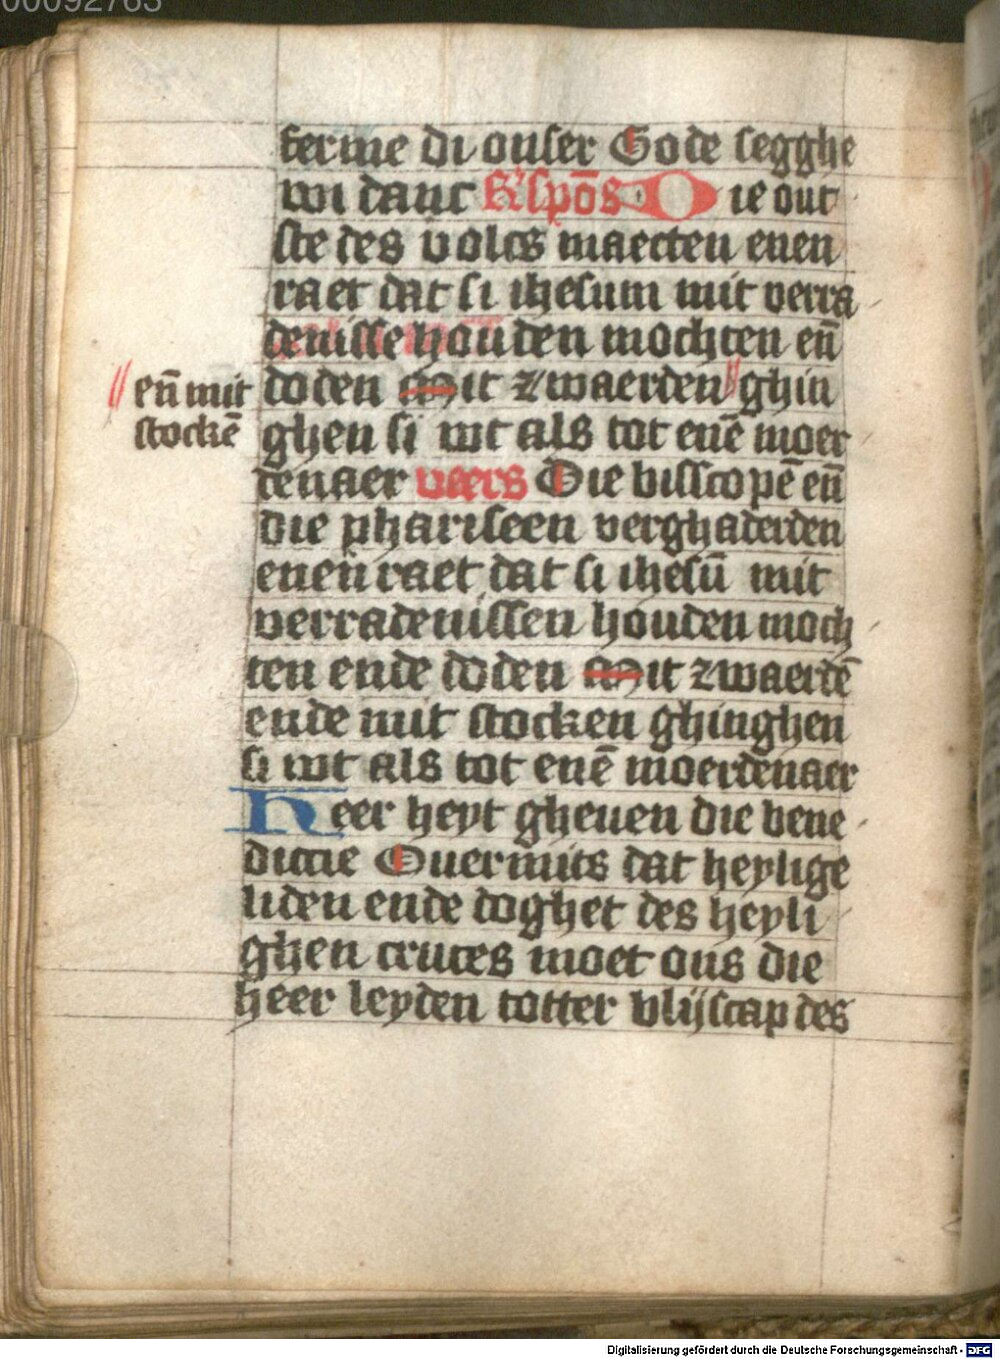 00092763
ferme di onser Gode segghe
wi danc R'spōs Die out
ste des volcs maecten enen
raet dat si ihesum mit verra
denisse houden mochten en̄
doden Mit zwaerden ghin
en̄ mit
stockē
ghen si wt als tot enē moer
denaer veers Die bisscopē en̄
die phariseen verghaderden
enen raet dat si ihesū mit
verradenissen houden moch
ten ende doden Mit zwaerdē
ende mit stocken ghinghen
si wt als tot enē moerdenaer
Heer heyt gheuen die bene
dictie Ouermits dat heylige
liden ende doghet des heyli
ghen cruces moet ons die
heer leyden totter blijscap des
Digitalisierung gefördert durch die Deutsche Forschungsgemeinschaft - DFG